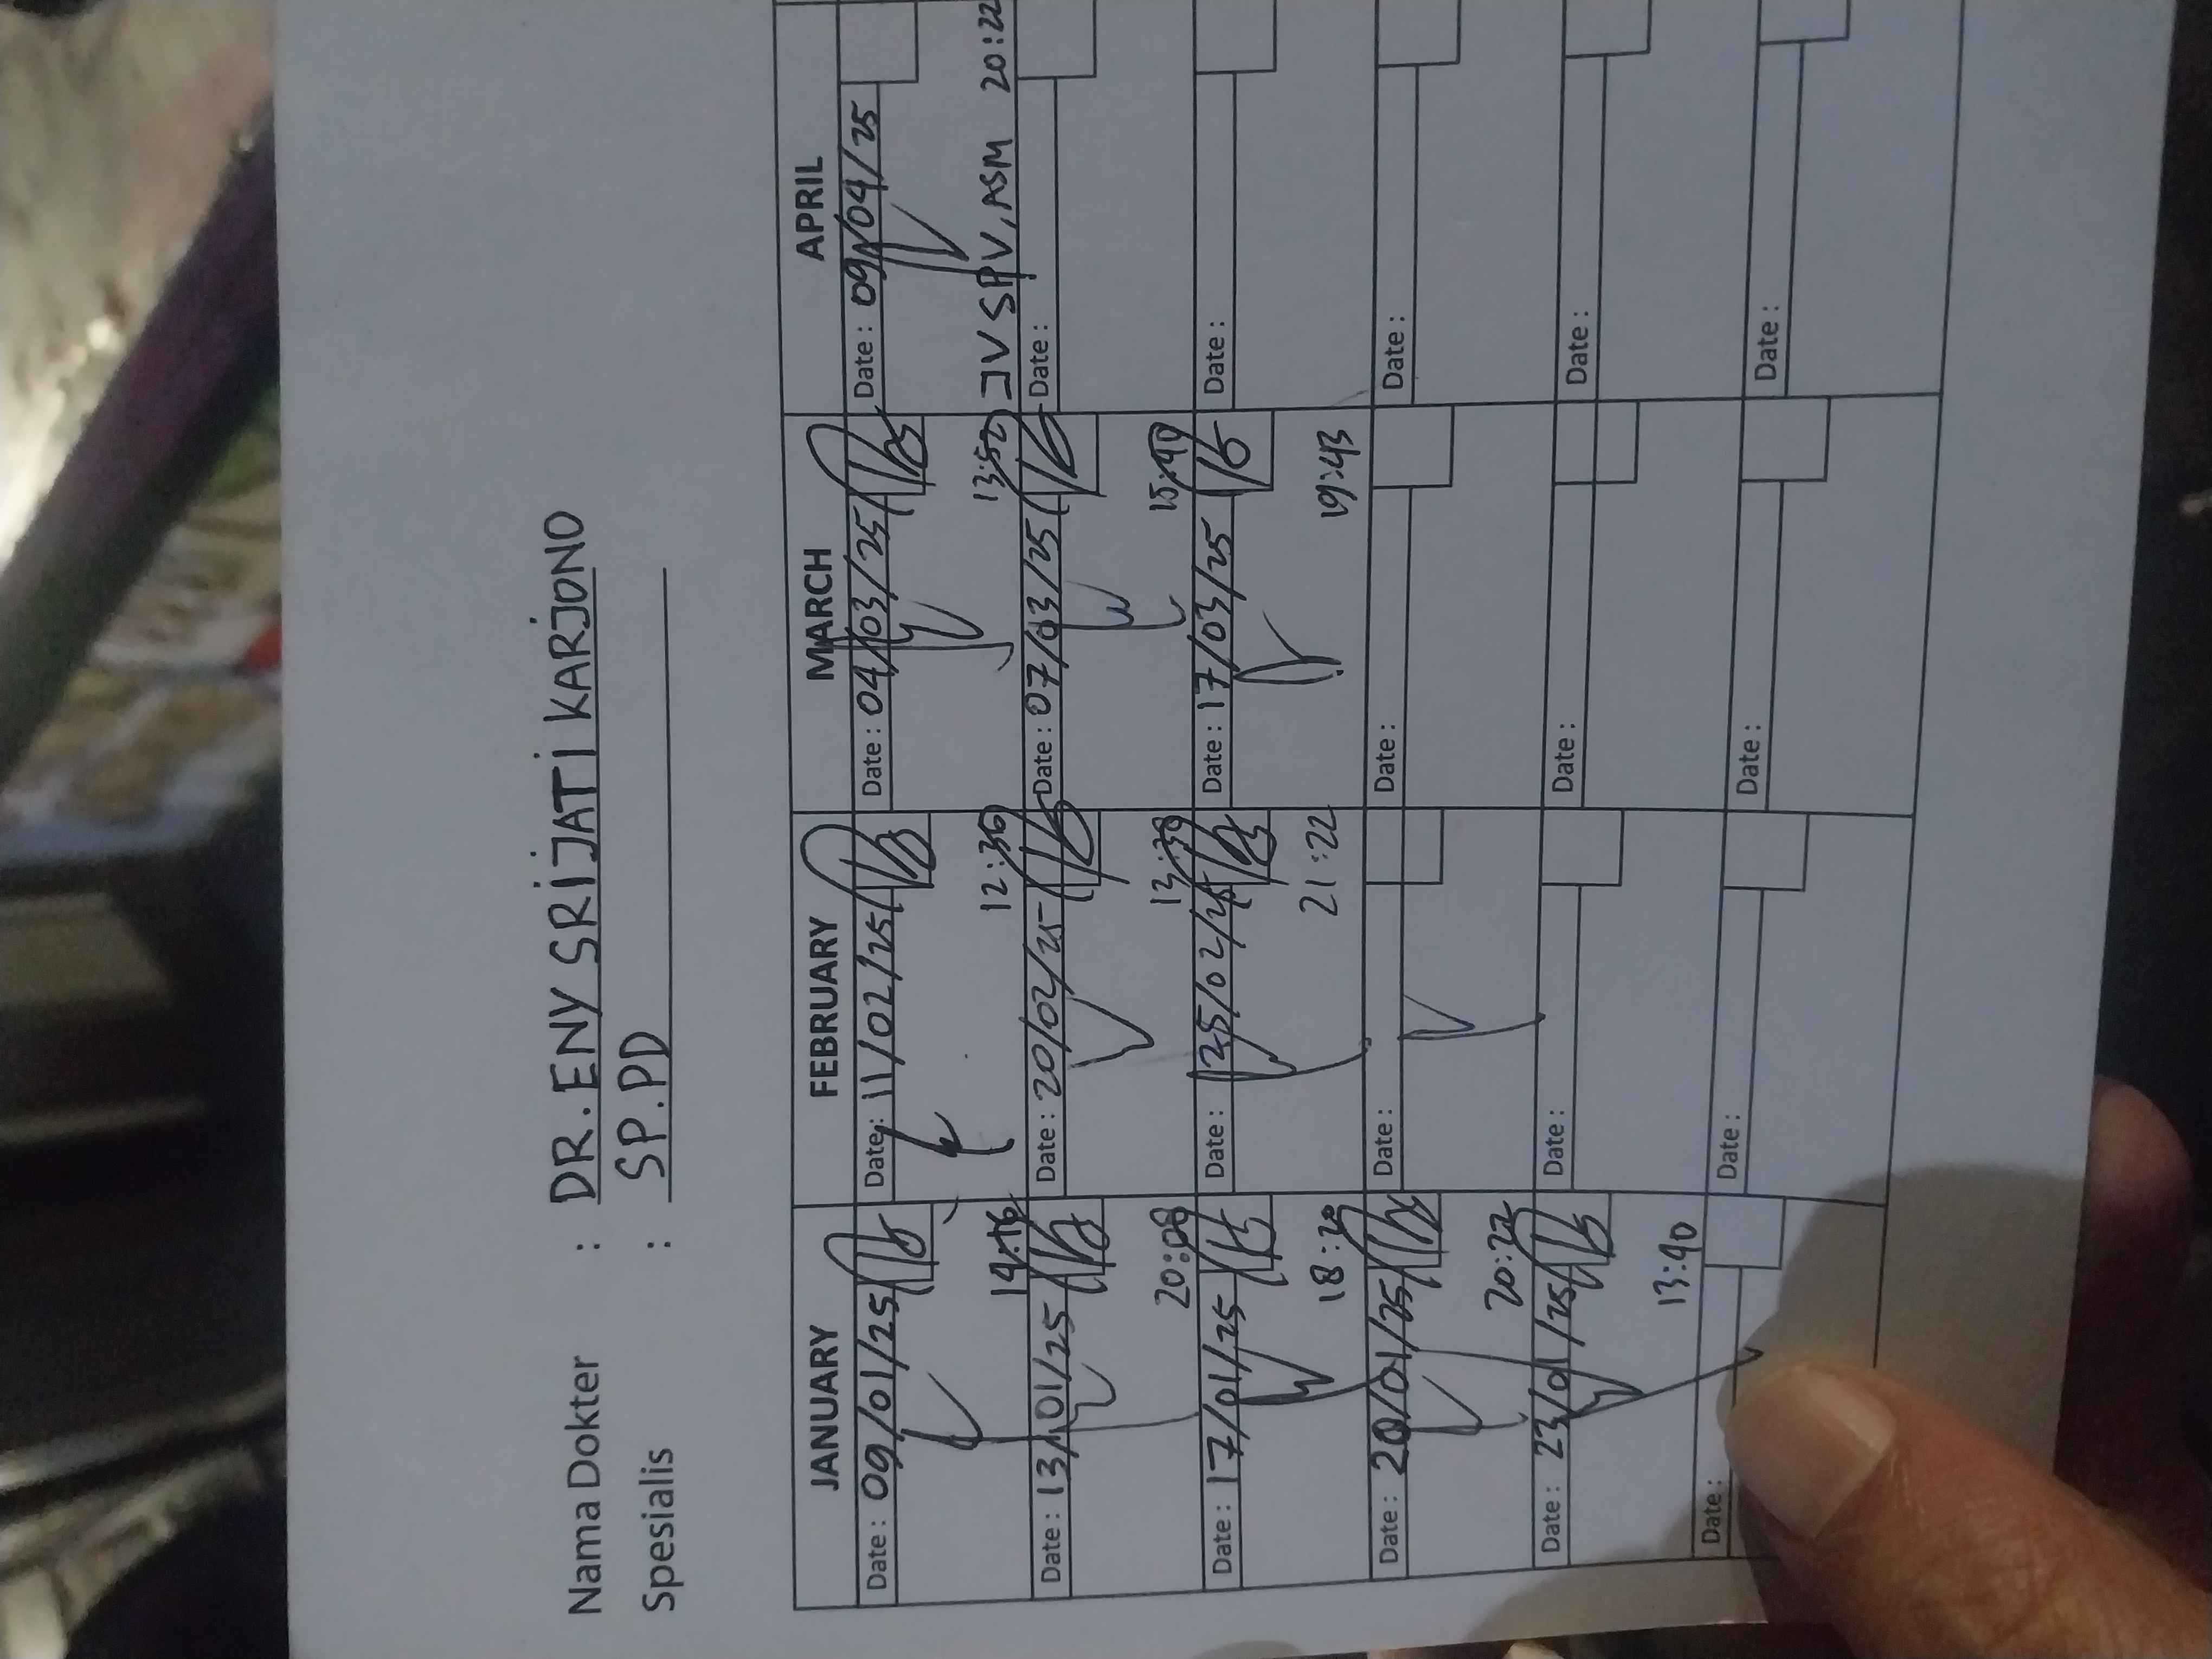 Nama Dokter : DR. ENY SRIJATI KARJONO
Spesialis : SP.PD
JANUARY FEBRUARY MARCH APRIL
Date : 09/01/25 Date : 11/02/25 Date : 04/03/25 Date : 09/04/25
14:16 12:36 13:52 JV SPV, ASM 20:22
Date : 13/01/25 Date : 20/02/25 Date : 07/03/25 Date :
20:08 13:38 15:49
Date : 17/01/25 Date : 25/02/25 Date : 17/03/25 Date :
18:20 21:22 19:43
Date : 20/01/25 Date : Date : Date :
20:22
Date : 23/01/25 Date : Date : Date :
13:40
Date : Date : Date : Date :